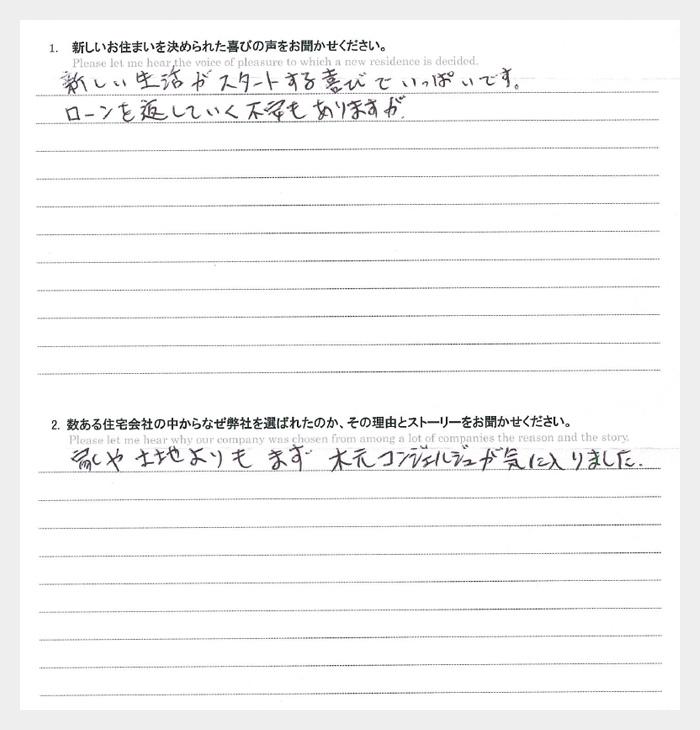 1. 新しいお住まいを決められた喜びの声をお聞かせください。
Please let me hear the voice of pleasure to which a new residence is decided.
新しい生活がスタートする喜びでいっぱいです。
ローンを返していく不安もありますが.
2. 数ある住宅会社の中からなぜ弊社を選ばれたのか、その理由とストーリーをお聞かせください。
Please let me hear why our company was chosen from among a lot of companies the renson and the story.
や土地よりもまず 木元コンシェルジュが気に入りました.